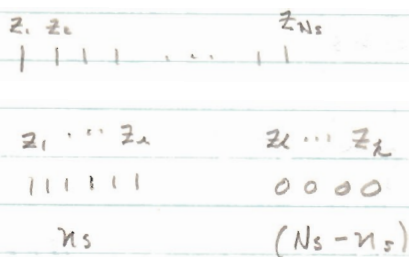 Z₁ Z₂ Z_Ns
| | | | ... | |
Z₁ ... Z_i Z_l ... Z_k
| | | | | | 0 0 0 0
n_s (N_s - n_s)